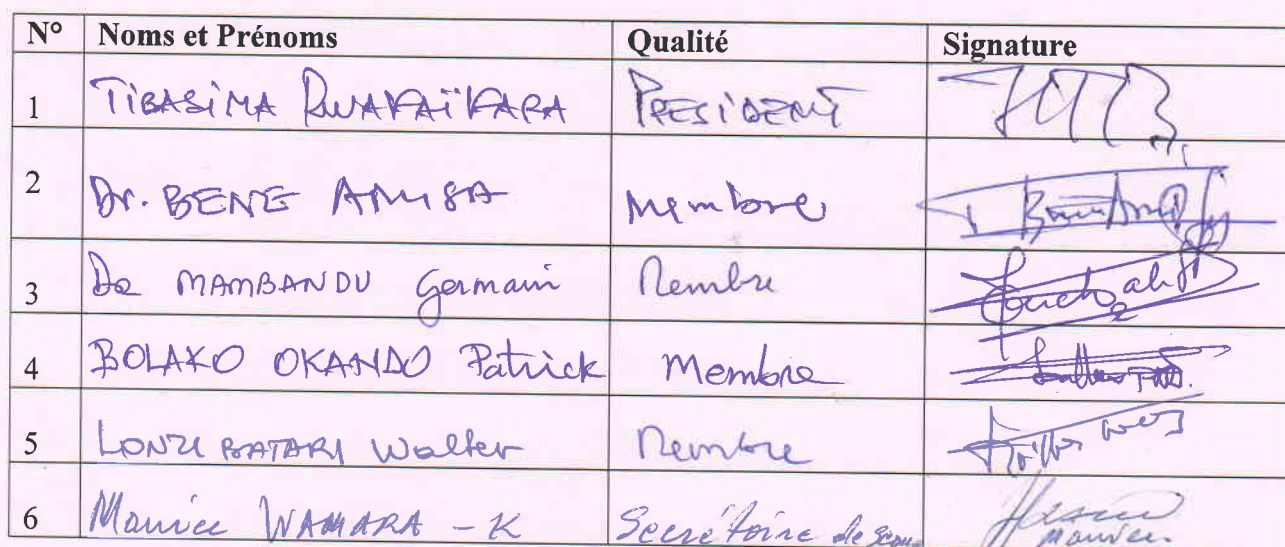 N° Noms et Prénoms Qualité Signature
1 TIBASIMA RWAKAÏKARA PRESIDENT
2 Dr. BENE AMISA Membre
3 De MAMBANDU Germain Membre
4 BOLAKO OKANDO Patrick Membre
5 LONZI BATARI Walter Membre
6 Maurice WAMARA - K Secrétaire de
Maurice